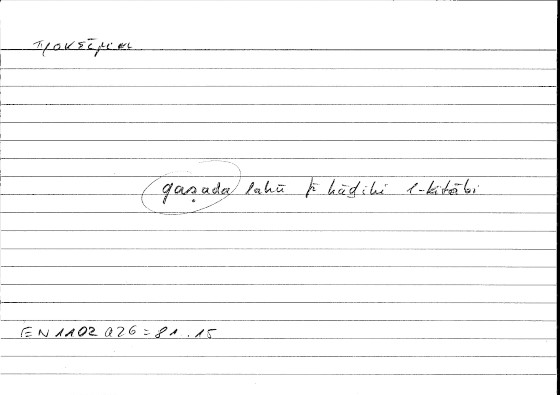 πρόκειμαι
qaṣada lahū fī hāḏihi l-kitābi
EN 1102 a26 = 81.15